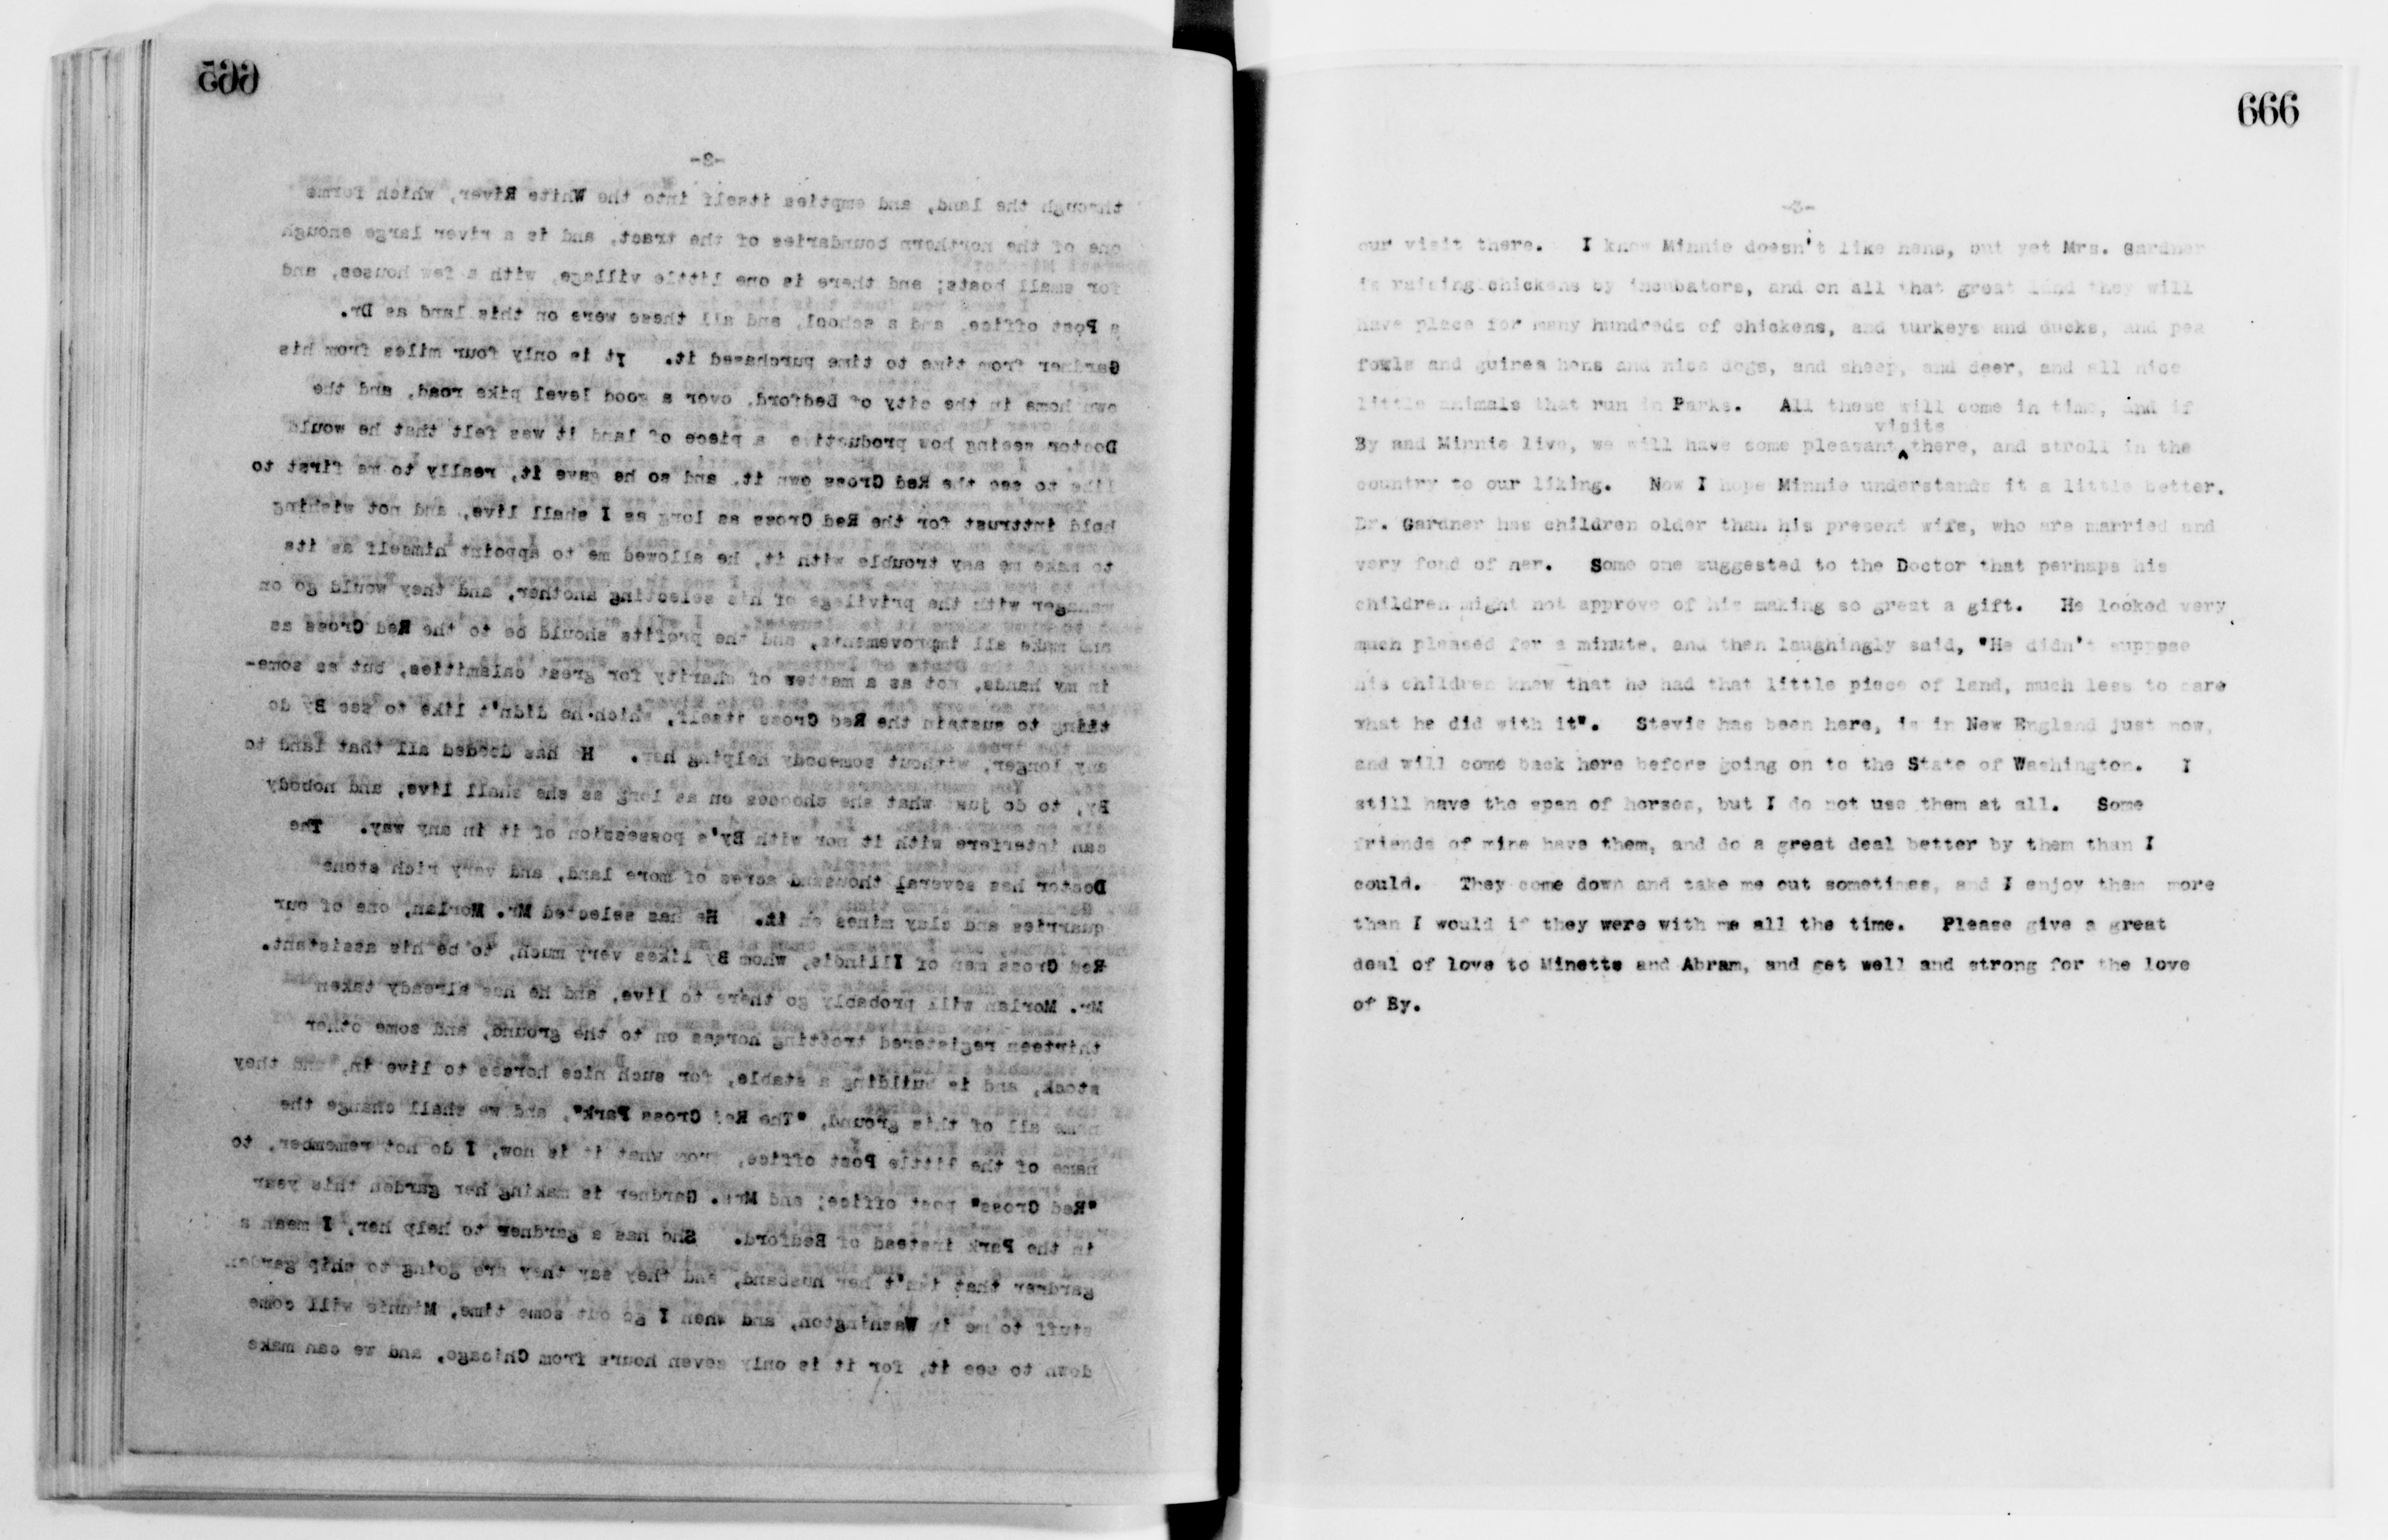 665
-2-
through the land, and empties itself into the White River, which forms
one of the northern boundaries of the tract, and is a river large enough
for small boats; and there is one little village, with a few houses, and
a Post office, and a school, and all these were on this land as Dr.
Gardner from time to time purchased it. It is only four miles from his
own home in the city of Bedford, over a good level pike road, and the
Doctor seeing how productive a piece of land it was felt that he would
like to see the Red Cross own it, and so he gave it, really to me first to
hold inttrust for the Red Cross as long as I shall live, and not wishing
to make me any trouble with it, he allowed me to appoint himself as its
manager with the privilege of his selecting another, and they would go on
and make all improvements, and the profits should be to the Red Cross as
in my hands, not as a matter of charity for great calamities, but as some-
thing to sustain the Red Cross itself, which he didn't like to see By do
any longer, without somebody helping her. He has deeded all that land to
By, to do just what she chooses on as long as she shall live, and nobody
can interfere with it nor with By's possession of it in any way. The
Doctor has several thousand acres of more land, and very rich stone
quarries and clay mines on it. He has selected Mr. Morlan, one of our
Red Cross men of Illinois, whom By likes very much, to be his assistant.
Mr. Morlan will probably go there to live, and he has already taken
thirteen registered trotting horses on to the ground, and some other
stock, and is building a stable, for such nice horses to live in, and they
name all of this ground, "The Red Cross Park", and we shall change the
name of the little Post office, from what it is now, I do not remember, to
"Red Cross" post office; and Mrs. Gardner is making her garden this year
in the Park instead of Bedford. She has a gardner to help her, I mean a
gardner that isn't her husband, and they say they are going to ship garden
stuff to me in Washington, and when I go out some time, Minnie will come
down to see it, for it is only seven hours from Chicago, and we can make
666
-3-
our visit there. I know Minnie doesn't like hens, but yet Mrs. Gardner
is raising chickens by incubators, and on all that great land they will
have place for many hundreds of chickens, and turkeys and ducks, and pea
fowls and guinea hens and nice dogs, and sheep, and deer, and all nice
little animals that run in Parks. All these will come in time, and if
visits
By and Minnie live, we will have some pleasant ^ there, and stroll in the
country to our liking. Now I hope Minnie understands it a little better.
Dr. Gardner has children older than his present wife, who are married and
very fond of her. Some one suggested to the Doctor that perhaps his
children might not approve of his making so great a gift. He looked very
much pleased for a minute, and then laughingly said, "He didn't suppose
his children knew that he had that little piece of land, much less to care
what he did with it". Stevie has been here, is in New England just now,
and will come back here before going on to the State of Washington. I
still have the span of horses, but I do not use them at all. Some
friends of mine have them, and do a great deal better by them than I
could. They come down and take me out sometimes, and I enjoy them more
than I would if they were with me all the time. Please give a great
deal of love to Minette and Abram, and get well and strong for the love
of By.